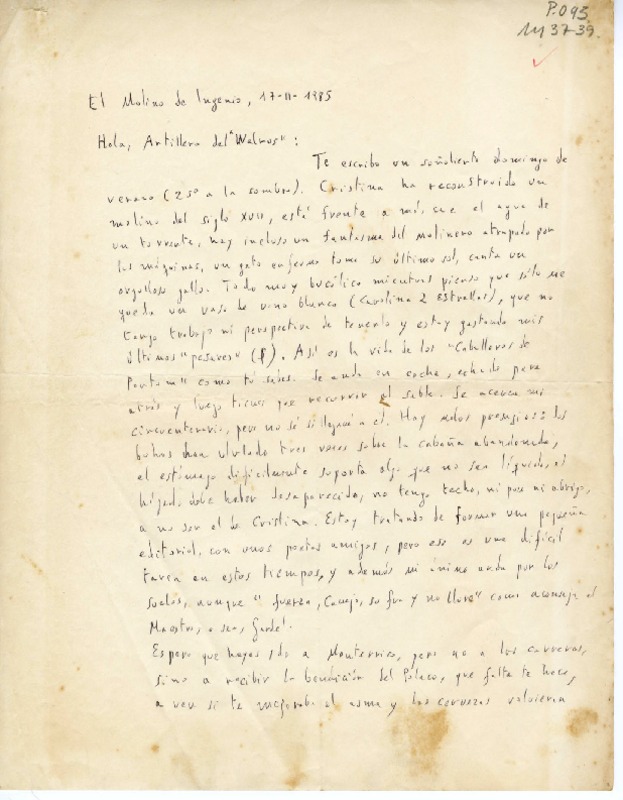 P.093
M 37-39.
El Molino de Ingenio, 17-II-1985
Hola, Artillero del "Walrus":
Te escribo un soñoliento domingo de
verano (25º a la sombra). Cristina ha reconstruido un
molino del siglo XVII, está frente a mí, cae el agua de
un torrente, hay incluso un fantasma del molinero atrapado por
las máquinas, un gato enfermo toma su último sol, canta un
orgulloso gallo. Todo muy bucólico mientras pienso que sólo me
queda un vaso de vino blanco (Carolina 2 Estrellas), que no
tengo trabajo ni perspectiva de tenerlo y estoy gastando mis
últimos "pesares" ($). Así es la vida de los "Caballeros de
Fortuna" como tú sabes. Se anda en coche, echado para
atrás y luego tienes que recorrer el sable. Se acerca mi
cincuentenario, pero no sé si llegaré a él. Hay malos presagios: los
buhos han ululado tres veces sobre la cabaña abandonada,
el estómago dificilmente soporta algo que no sea líquido, el
hígado debe haber desaparecido, no tengo techo, ni pan ni abrigo,
a no ser el de Cristina. Estoy tratando de formar una pequeña
editorial, con unos poetas amigos, pero eso es una difícil
tarea en estos tiempos, y además mi ánimo anda por los
suelos, aunque "fuerza, Canejo, sufra y no llore" como aconseja el
Maestro, o sea, Gardel.
Espero que hayas ido a Monterrico, pero no a las carreras,
sino a recibir la bendición del Polaco, que falta te hace,
a ver si te mejoraba el asma y las cervezas volvieran